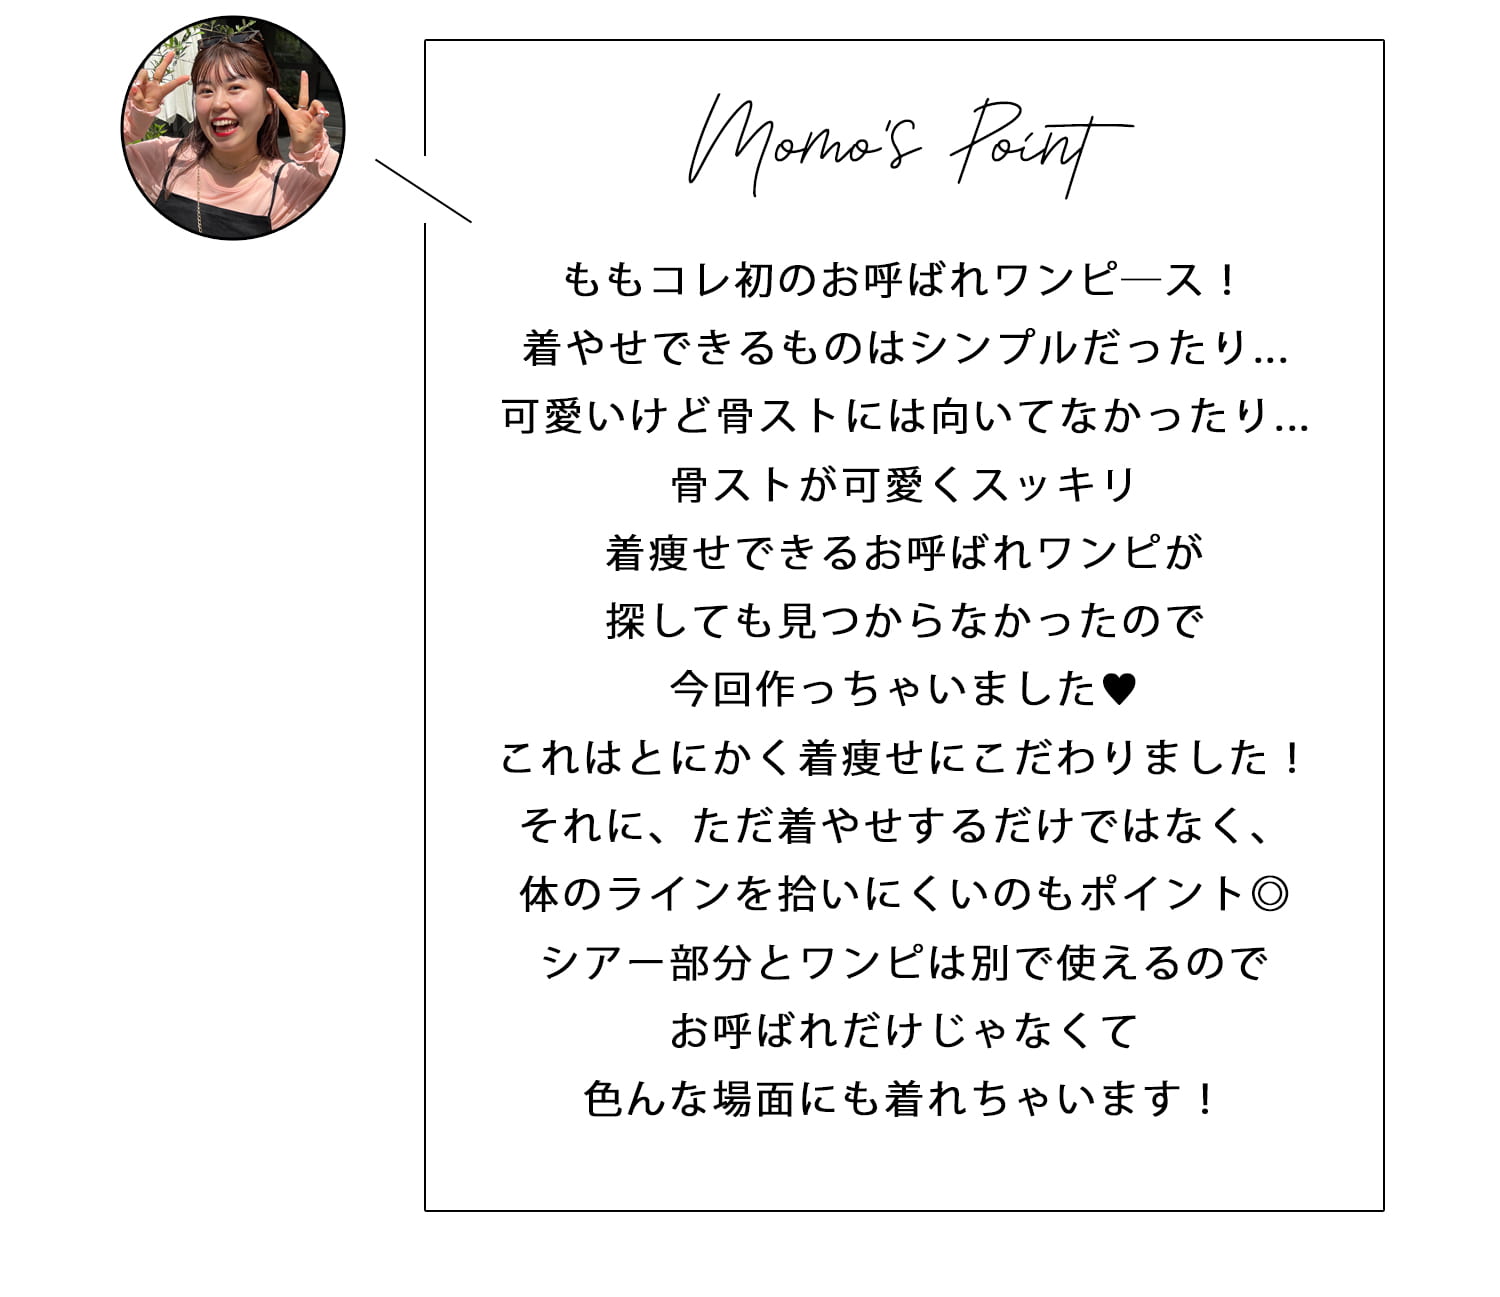 Momo's Point
ももコレ初のお呼ばれワンピ―ス！
着やせできるものはシンプルだったり…
可愛いけど骨ストには向いてなかったり…
骨ストが可愛くスッキリ
着痩せできるお呼ばれワンピが
探しても見つからなかったので
今回作っちゃいました♥
これはとにかく着痩せにこだわりました！
それに、ただ着やせするだけではなく、
体のラインを拾いにくいのもポイント◎
シアー部分とワンピは別で使えるので
お呼ばれだけじゃなくて
色んな場面にも着れちゃいます！